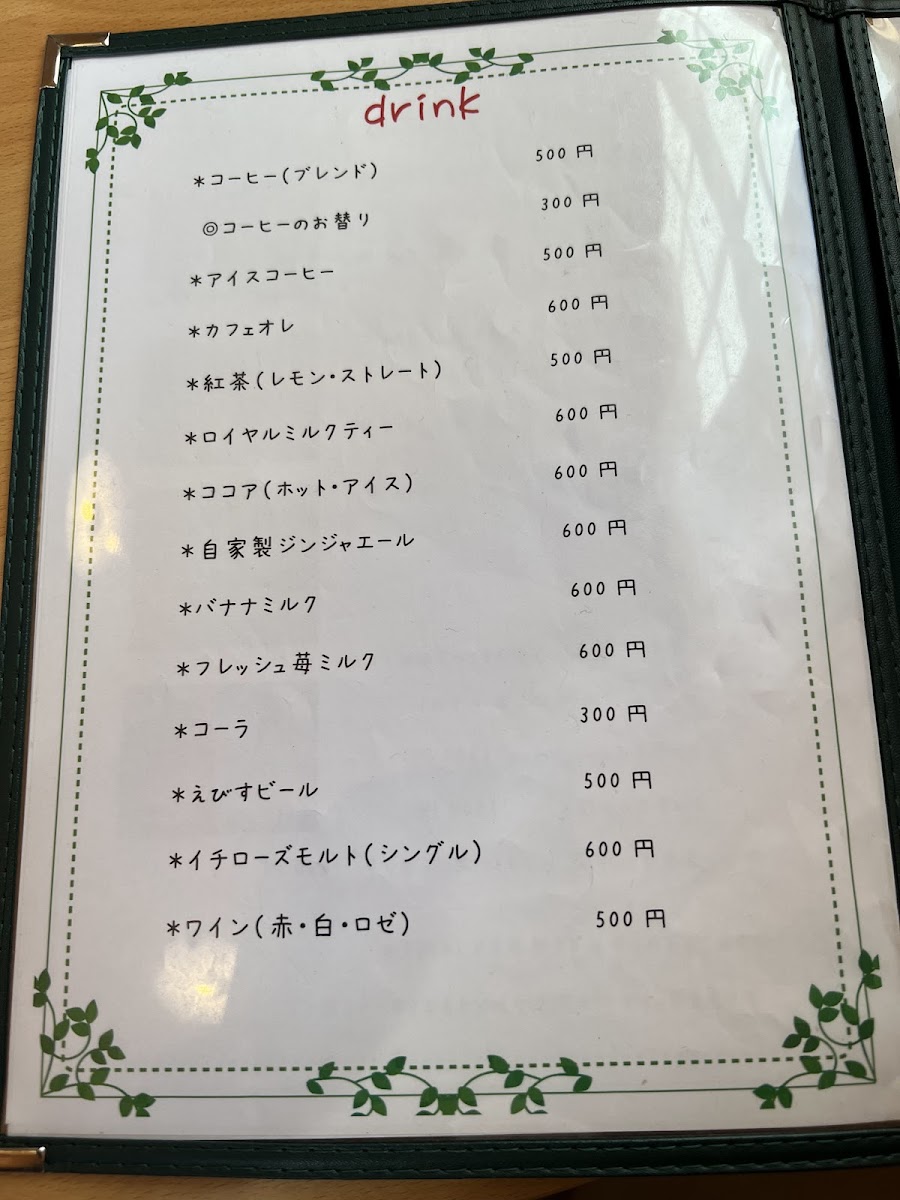 drink
*コーヒー(ブレンド) 500 円
◎コーヒーのお替り 300 円
*アイスコーヒー 500 円
*カフェオレ 600 円
*紅茶(レモン・ストレート) 500 円
*ロイヤルミルクティー 600 円
*ココア(ホット・アイス) 600 円
*自家製ジンジャエール 600 円
*バナナミルク 600 円
*フレッシュ苺ミルク 600 円
*コーラ 300 円
*えびすビール 500 円
*イチローズモルト(シングル) 600 円
*ワイン(赤・白・ロゼ) 500 円